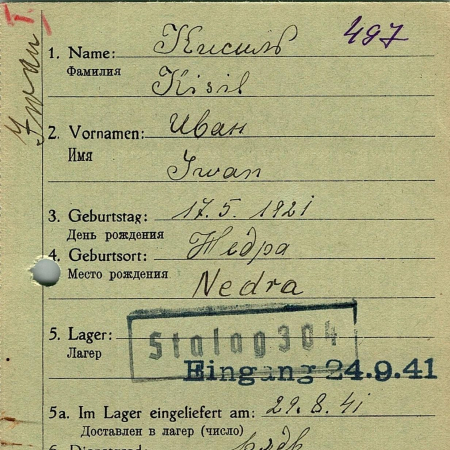 Iwan
1. Name: Кисиль 497
Фамилия
Kisil
2. Vornamen: Иван
Имя
Iwan
3. Geburtstag: 17.5.1921
День рождения
4. Geburtsort: Недра
Место рождения
Nedra
5. Lager: Stalag 304
Лагер
Eingang 24.9.41
5a. Im Lager eingeliefert am: 29.8.41
Доставлен в лагер (число)